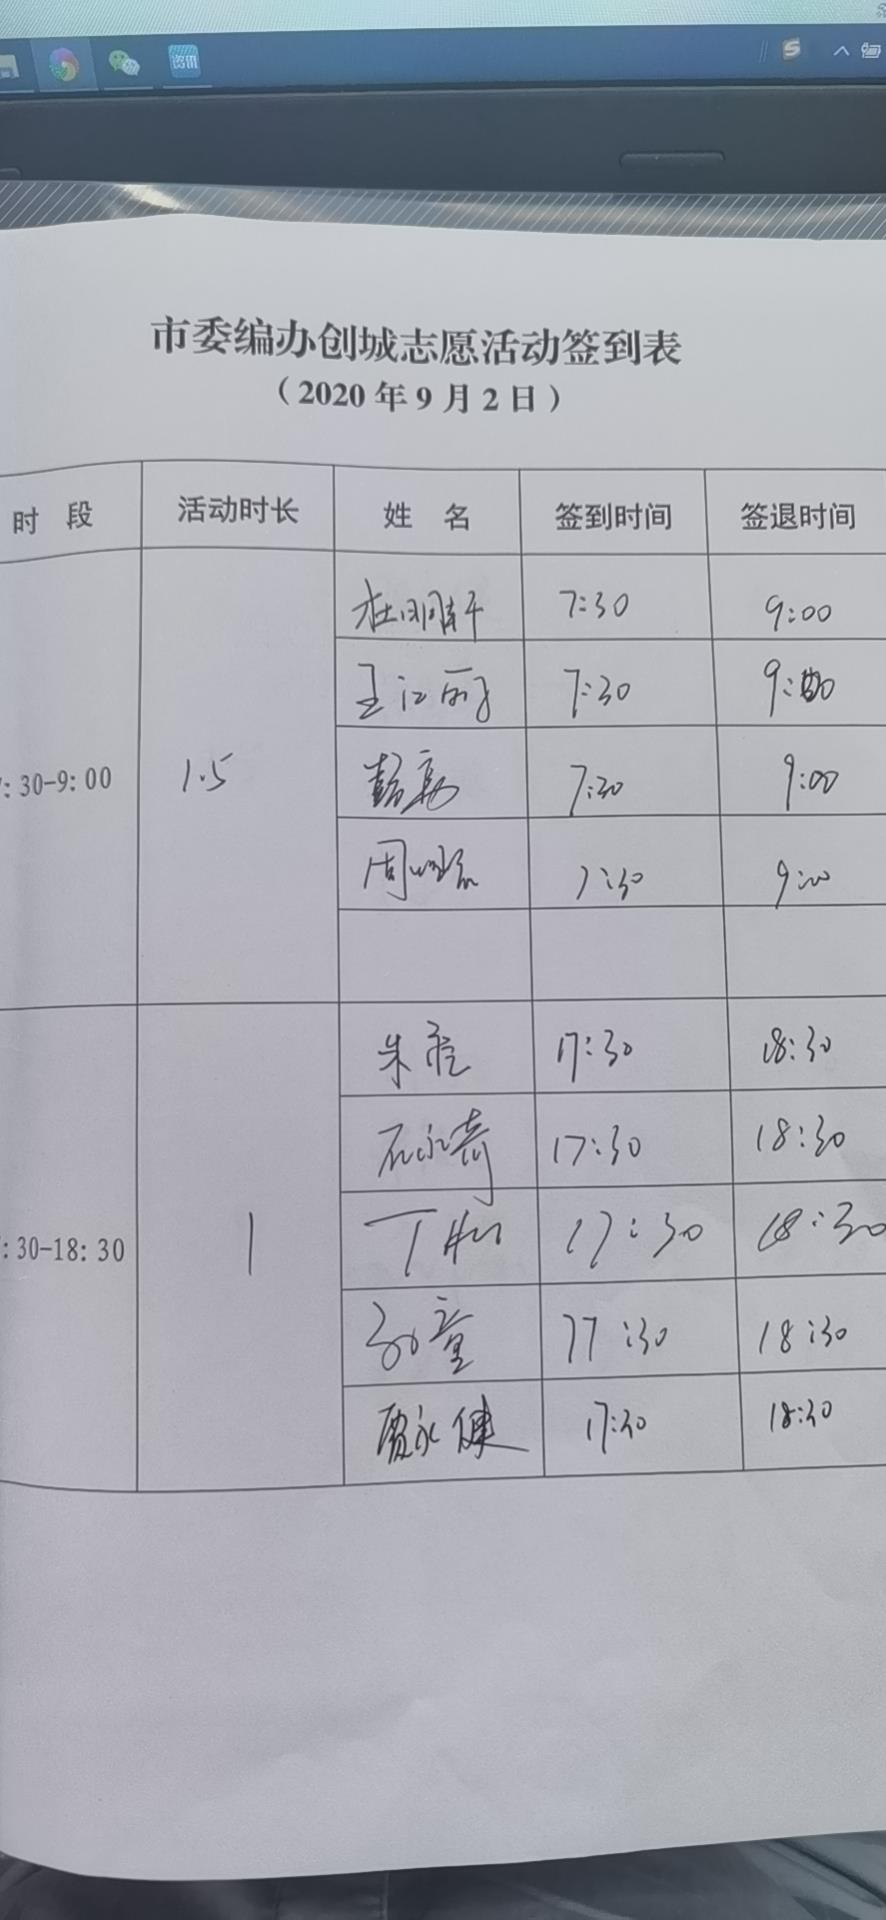 资讯
市委编办创城志愿活动签到表
（2020年9月2日）
时 段 活动时长 姓 名 签到时间 签退时间
杜明轩 7:30 9:00
王江丽 7:30 9:00
:30-9:00 1.5 彭勃 7:30 9:00
周 7:30 9:00
朱 17:30 18:30
石永奇 17:30 18:30
:30-18:30 1 丁 17:30 18:30
孙童 17:30 18:30
贾永健 17:30 18:30